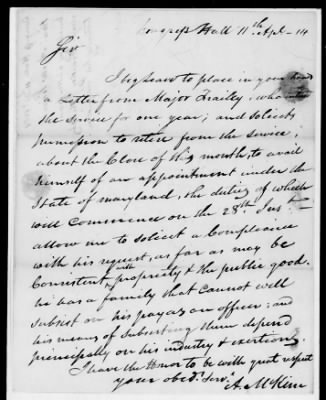 Congress Hall 11th Apl - 14
Sir
I beg leave to place in your hands
a Letter from Major Frailey, who
the Service for one year; and Solicits
permission to retire from the Service,
about the Close of this month, to avail
himself of an appointment under the
State of maryland, the duties of which
will commence on the 28th Inst
allow me to solicit a Compliance
with his request, as far as may be
Consistent with propriety & the public good.
he has a family that cannot well
subsist on his pay as an officer; and
his means of Subsisting them depend
principally on his industry & exertions,
I have the Honor to be with great respect
your obedt Servt
A. McKim